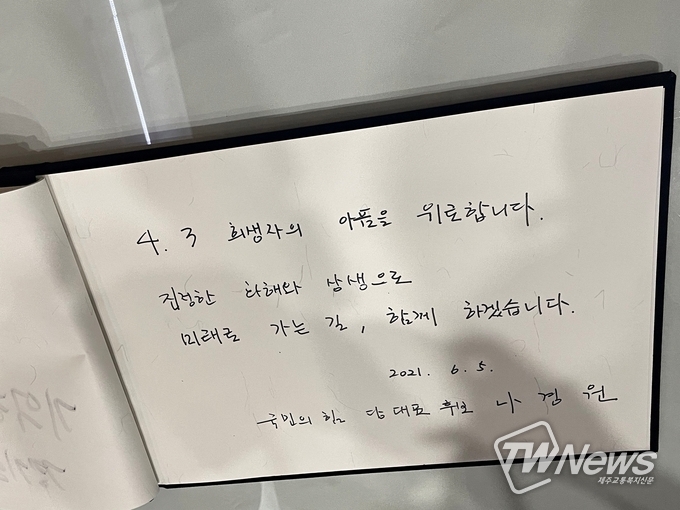 4.3 희생자의 아픔을 위로합니다.
진정한 화해와 상생으로
미래로 가는 길, 함께 하겠습니다.
2021. 6. 5.
국민의힘 당대표 후보 나경원
TWNews
제주교통복지신문